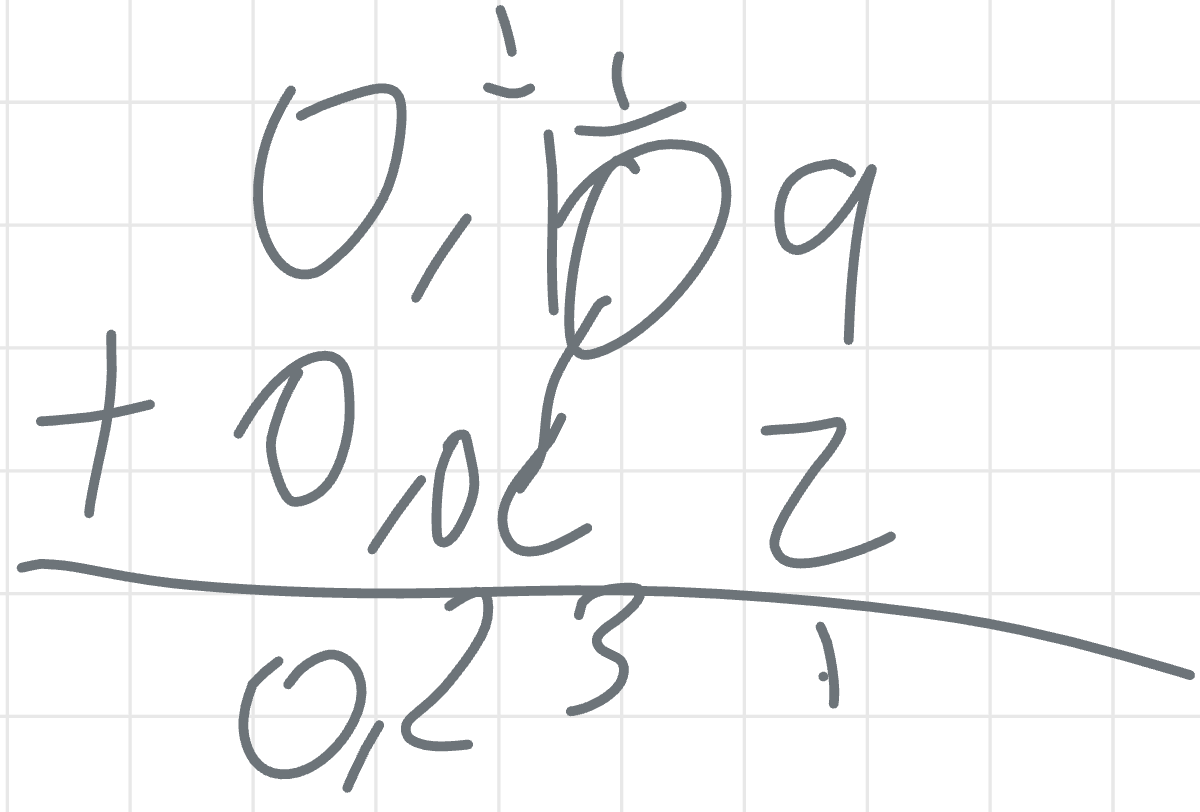 1 1
0,109
+ 0,022
0,231